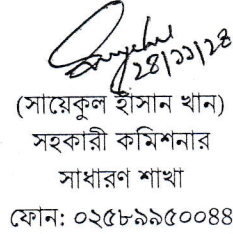 ২৪/১১/২৪
(সায়েকুল হাসান খান)
সহকারী কমিশনার
সাধারণ শাখা
ফোন: ০২৫৮৯৯৫০০৪৪